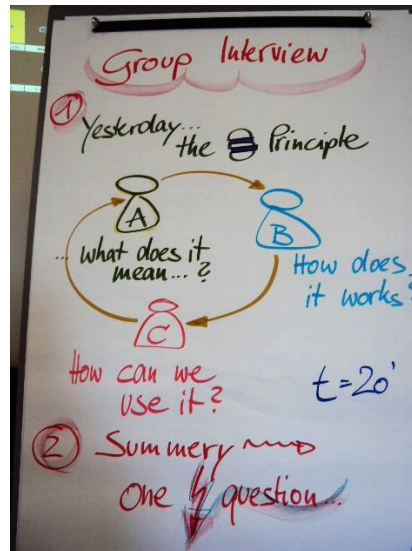 Group Interview
1 Yesterday...
the Principle
A
B
... what does it
mean...?
How does
it works?
C
How can we
use it?
t = 20'
2 Summery
One question...